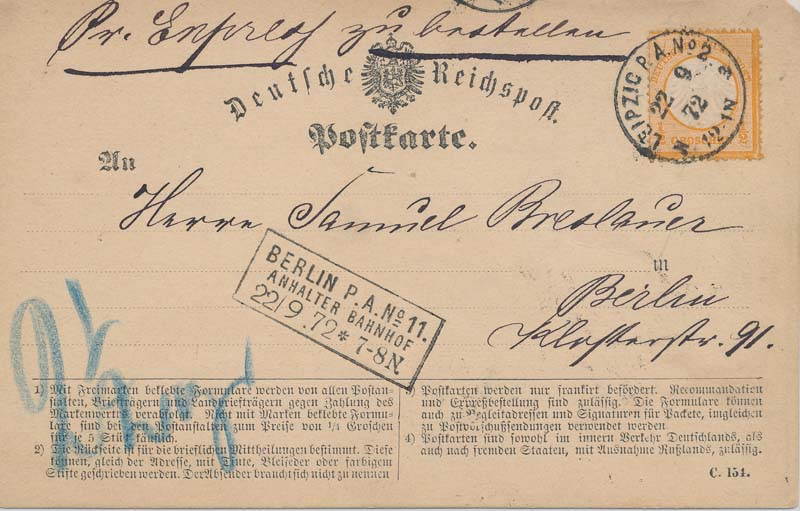 Pr. Express zu bestellen
Deutsche Reichspost.
Postkarte.
LEIPZIG P.A. No 2
22 9
72
N. 12-1N
An
Herrn Samuel Breslauer
in
Berlin
Klosterstr. 91.
BERLIN P.A. No 11.
ANHALTER BAHNHOF
22/9.72 * 7-8N
1) Mit Freimarken beklebte Formulare werden von allen Postan-
stalten, Briefträgern und Landbriefträgern gegen Zahlung des
Markenwerths verabfolgt. Nicht mit Marken beklebte Formu-
lare sind bei Postanstalten zum Preise von 1/4 Groschen
für je 5 Stück käuflich.
2) Die Rückseite ist für die brieflichen Mittheilungen bestimmt. Diese
können, gleich der Adresse, mit Tinte, Bleifeder oder farbigem
Stifte geschrieben werden. Der Absender braucht sich nicht zu nennen
3) Postkarten werden nur frankirt befördert. Recommandation
und Expreßbestellung sind zulässig. Die Formulare können
auch zu Begleitadressen und Signaturen für Packete, ingleichen
zu Postvorschußsendungen verwendet werden
4) Postkarten sind sowohl im innern Verkehr Deutschlands, als
auch nach fremden Staaten, mit Ausnahme Rußlands, zulässig.
C. 154.